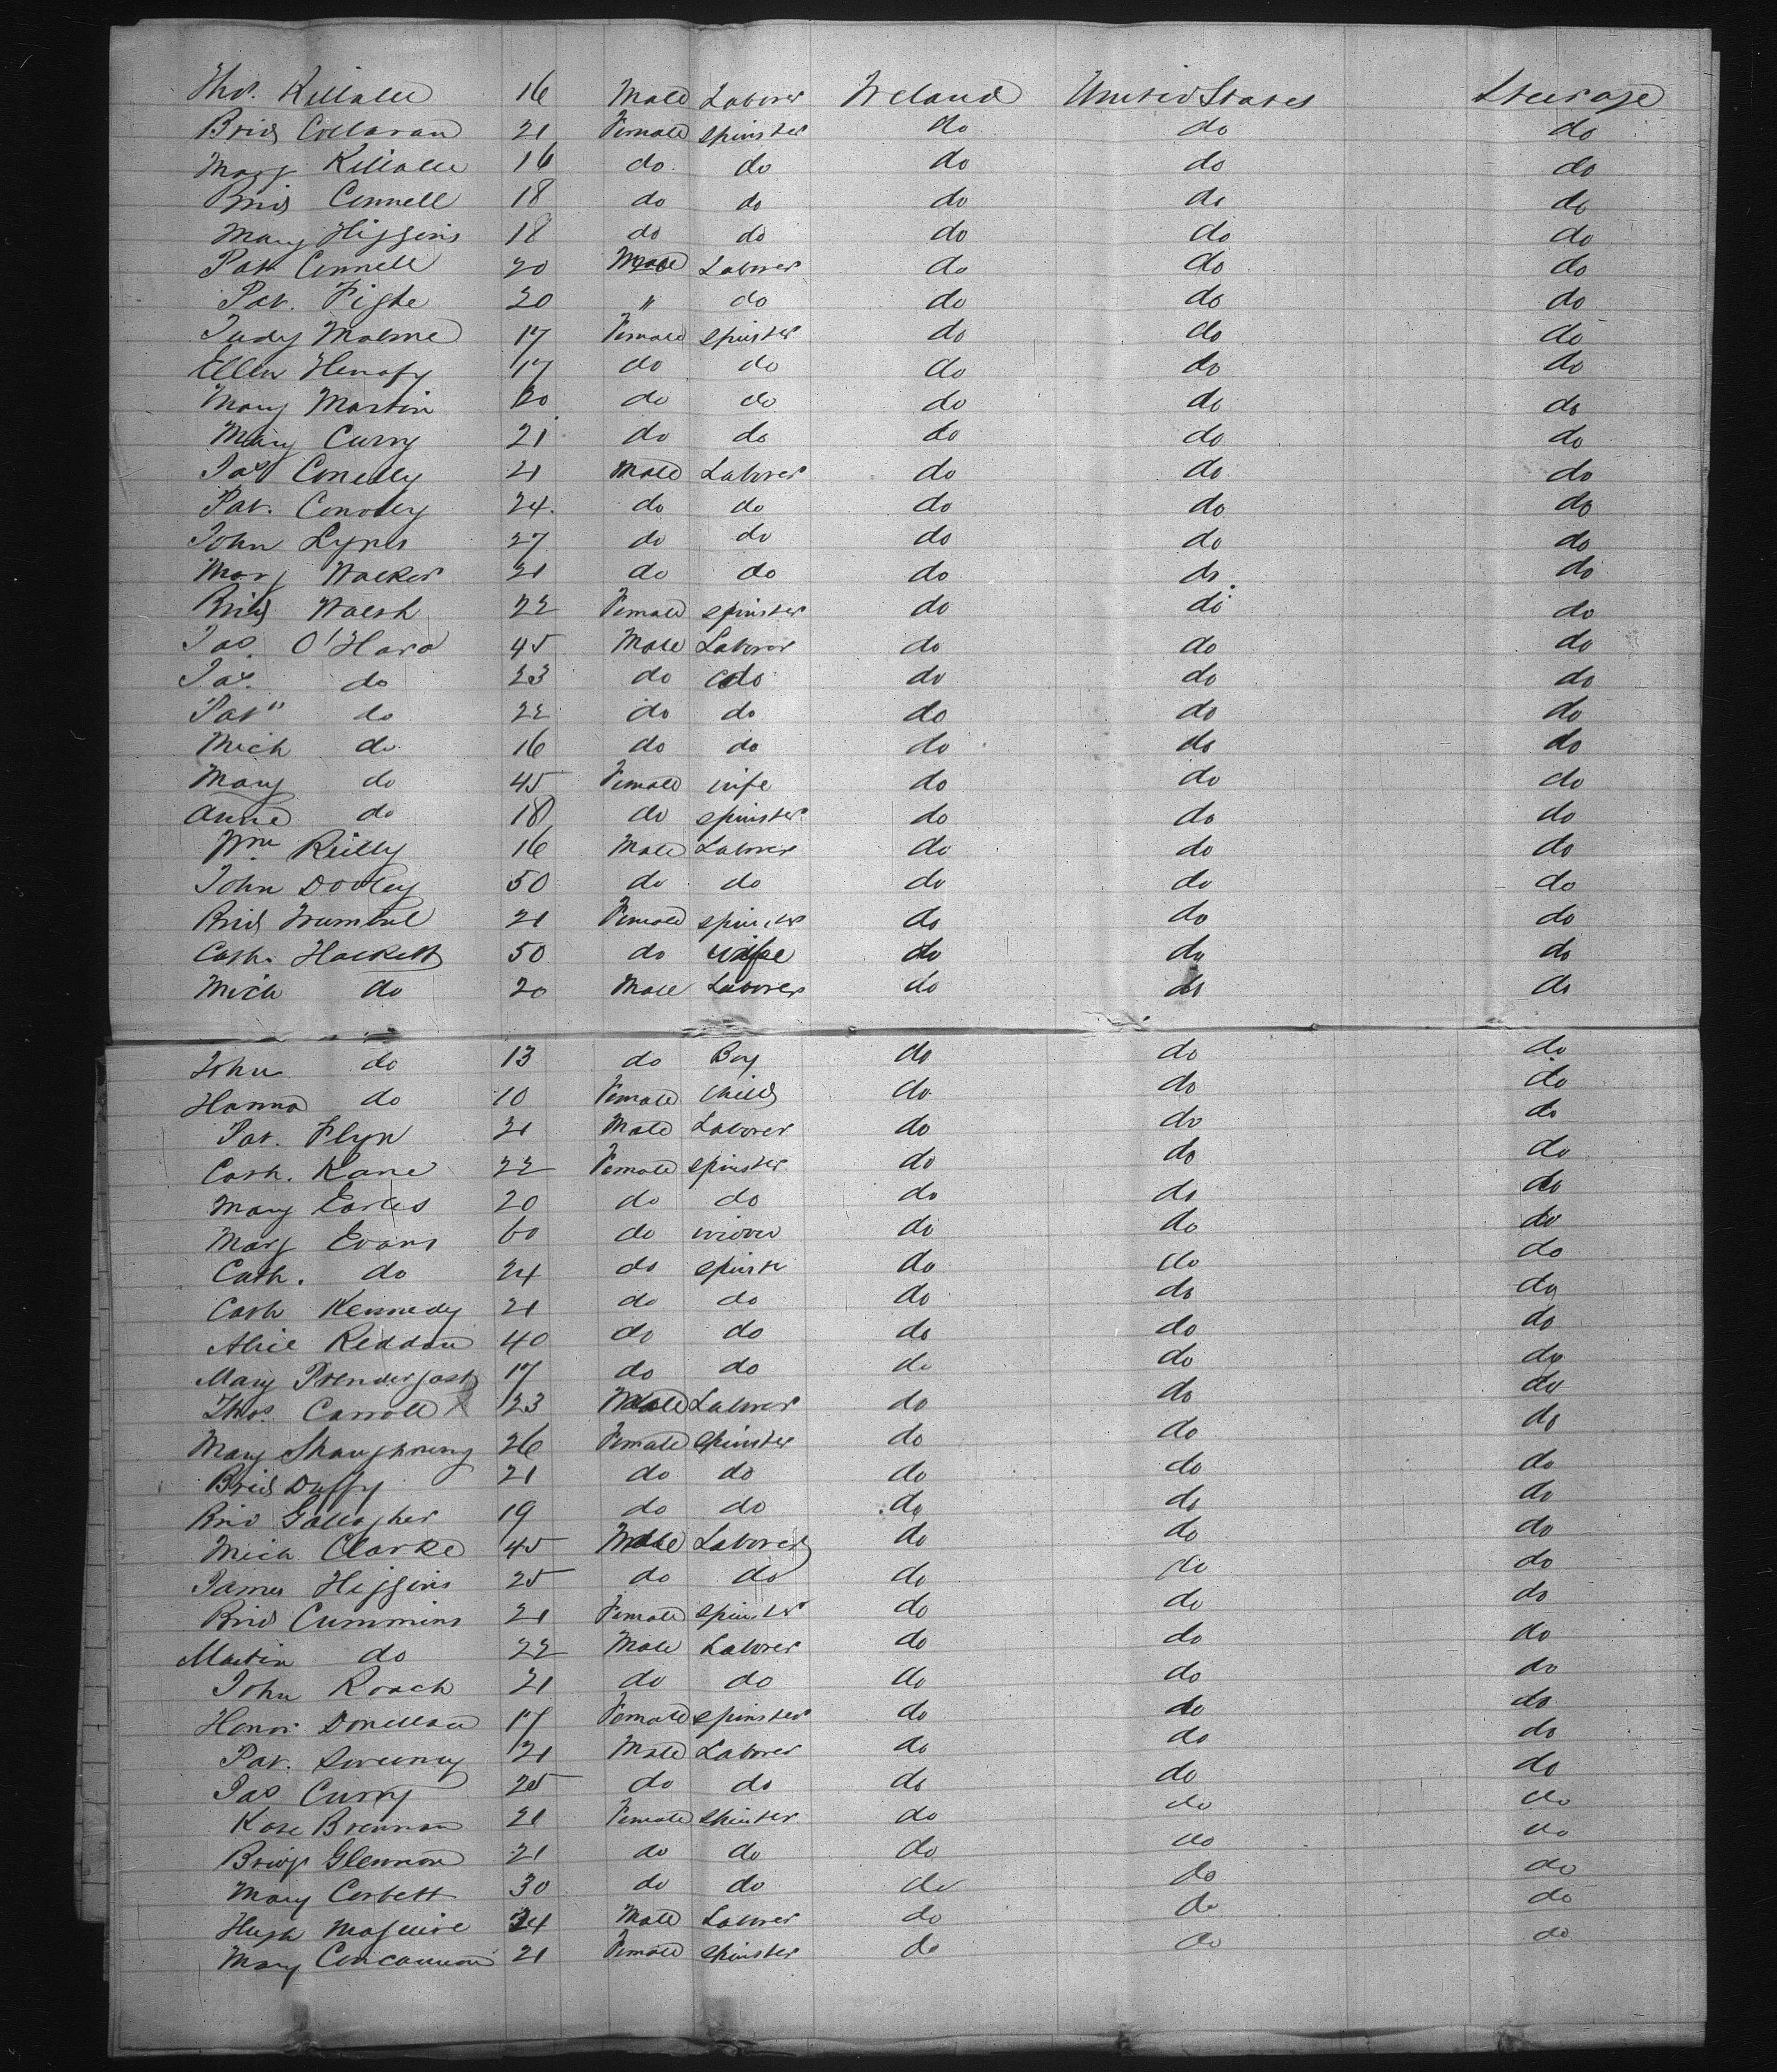 Thos. Killalee 16 Male Laborer Ireland United States Steerage
Brid Collaran 21 Female spinster do do do
Mary Killalee 16 do do do do do
Brid Connell 18 do do do do do
Mary Higgins 18 do do do do do
Pat Connell 20 Male Laborer do do do
Pat. Tighe 20 " do do do do
Judy Malone 17 Female spinster do do do
Ellen 17 do do do do do
Mary Martin 20 do do do do do
Mary Curry 21 do do do do do
Jas Conelly 21 Male Laborer do do do
Pat. Conolly 24 do do do do do
John Lyons 27 do do do do do
Mary Walker 21 do do do do do
Brid Walsh 22 Female spinster do do do
Jas. O'Hara 45 Male Laborer do do do
Jas. do 23 do do do do do
Pat" do 22 do do do do do
Mich do 16 do do do do do
Mary do 45 Female wife do do do
Anne do 18 do spinster do do do
Wm Reilly 16 Male Laborer do do do
John Dooley 50 do do do do do
Brid Trumbul 21 Female spinster do do do
Cath. Hackett 50 do wife do do do
Mich do 20 Male Laborer do do do
John do 13 do Boy do do do
Hanna do 10 Female child do do do
Pat. Flyn 21 Male Laborer do do do
Cath. Kane 22 Female spinster do do do
Mary Earles 20 do do do do do
Mary Evans 60 do widow do do do
Cath. do 24 do spinstr do do do
Cath Kennedy 21 do do do do do
Alice Reddan 40 do do do do do
Mary Prendergast 17 do do do do do
Thos. Carroll 23 Male Laborer do do do
Mary Shaughnesy 26 Female spinster do do do
Brid Duffy 21 do do do do do
Brid Gallagher 19 do do do do do
Mich Clarke 45 Male Laborer do do do
James Higgins 25 do do do do do
Brid Cummins 21 Female spinster do do do
Martin do 22 Male Laborer do do do
John Roach 21 do do do do do
Honor Donellan 17 Female spinster do do do
Pat. Sweeney 21 Male Laborer do do do
Jas Curry 25 do do do do do
Rose Brennan 21 Female spinster do do do
Bridgt Glennon 21 do do do do do
Mary Corbett 30 do do do do do
Hugh Maguire 24 Male Laborer do do do
Mary Concannon 21 Female spinster do do do